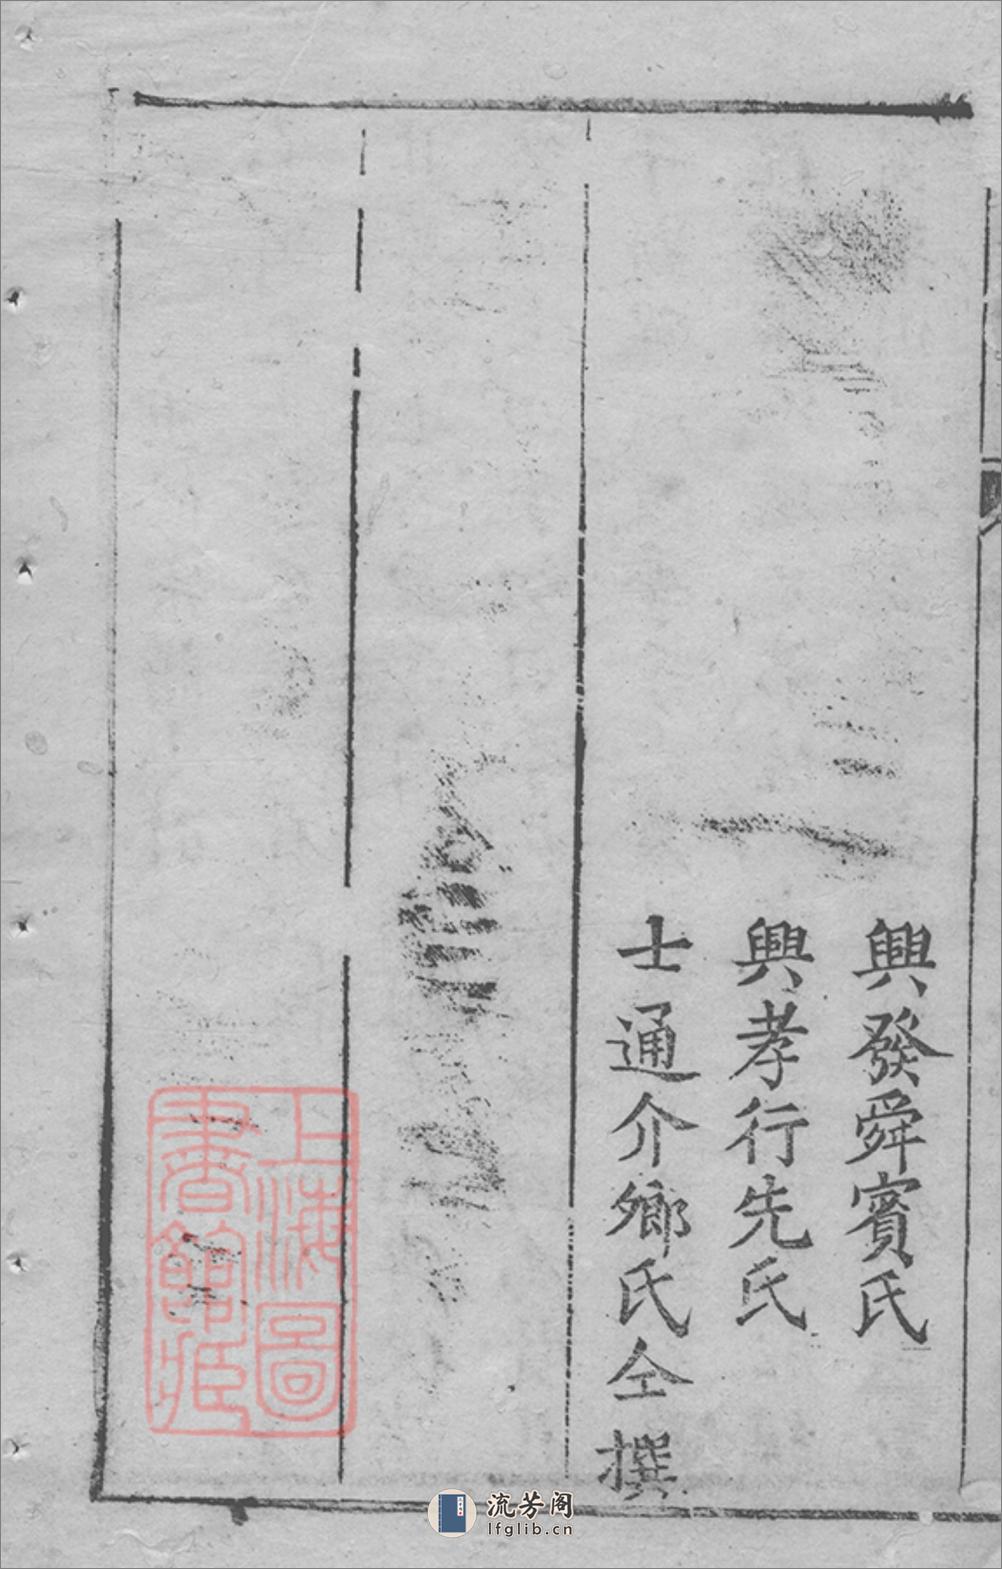 興發舜賓氏
興孝行先氏
士通介鄉氏仝撰
上海圖
書館藏
流芳阁
lfglib.cn